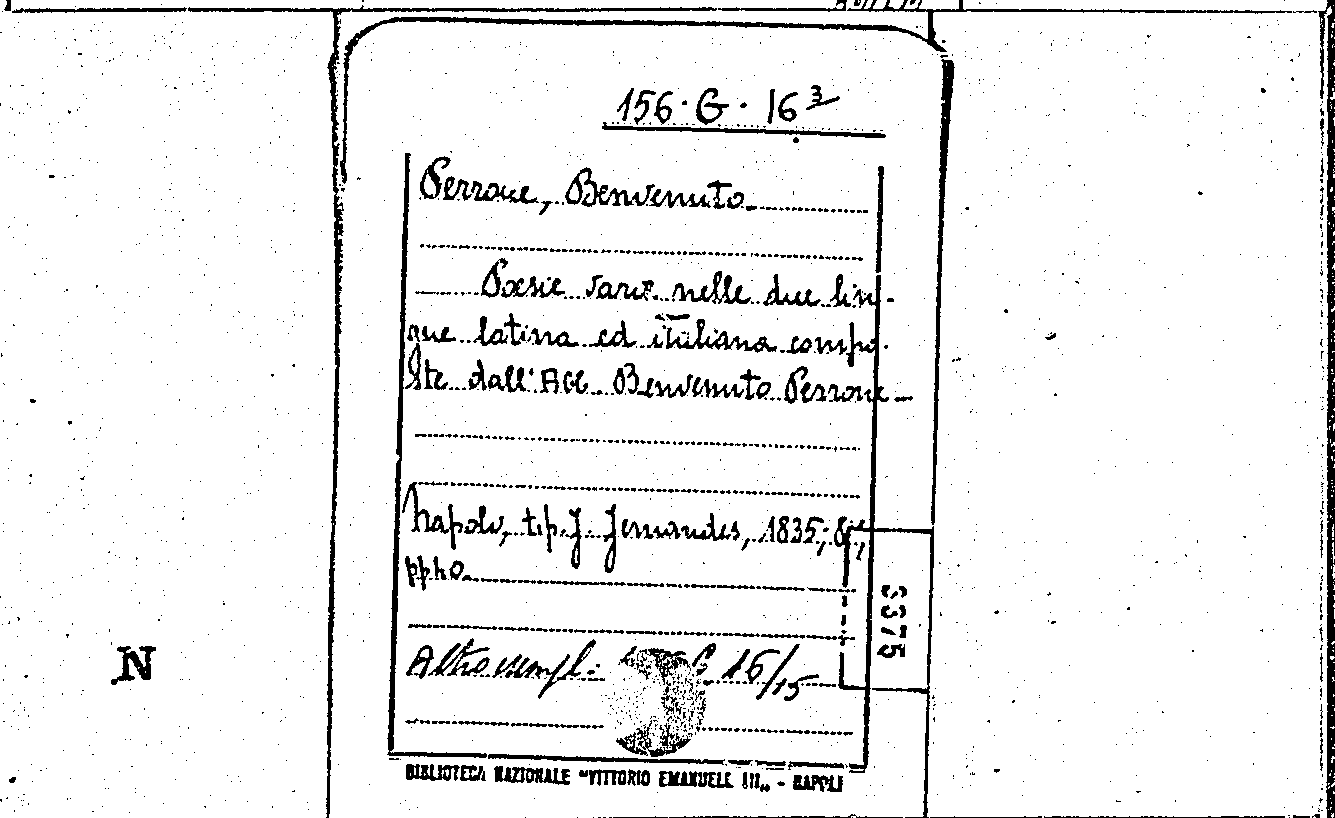 156.G.16³
Perrone, Benvenuto_
Poesie varie nelle due lin-
gue latina ed italiana compo-
ste dall'Ab. Benvenuto Perrone_
Napoli, tip. J. Jernandes, 1835; 8°,
pp40.
3375
N
Altro esempl: 16/15
BIBLIOTECA NAZIONALE "VITTORIO EMANUELE III„ - NAPOLI